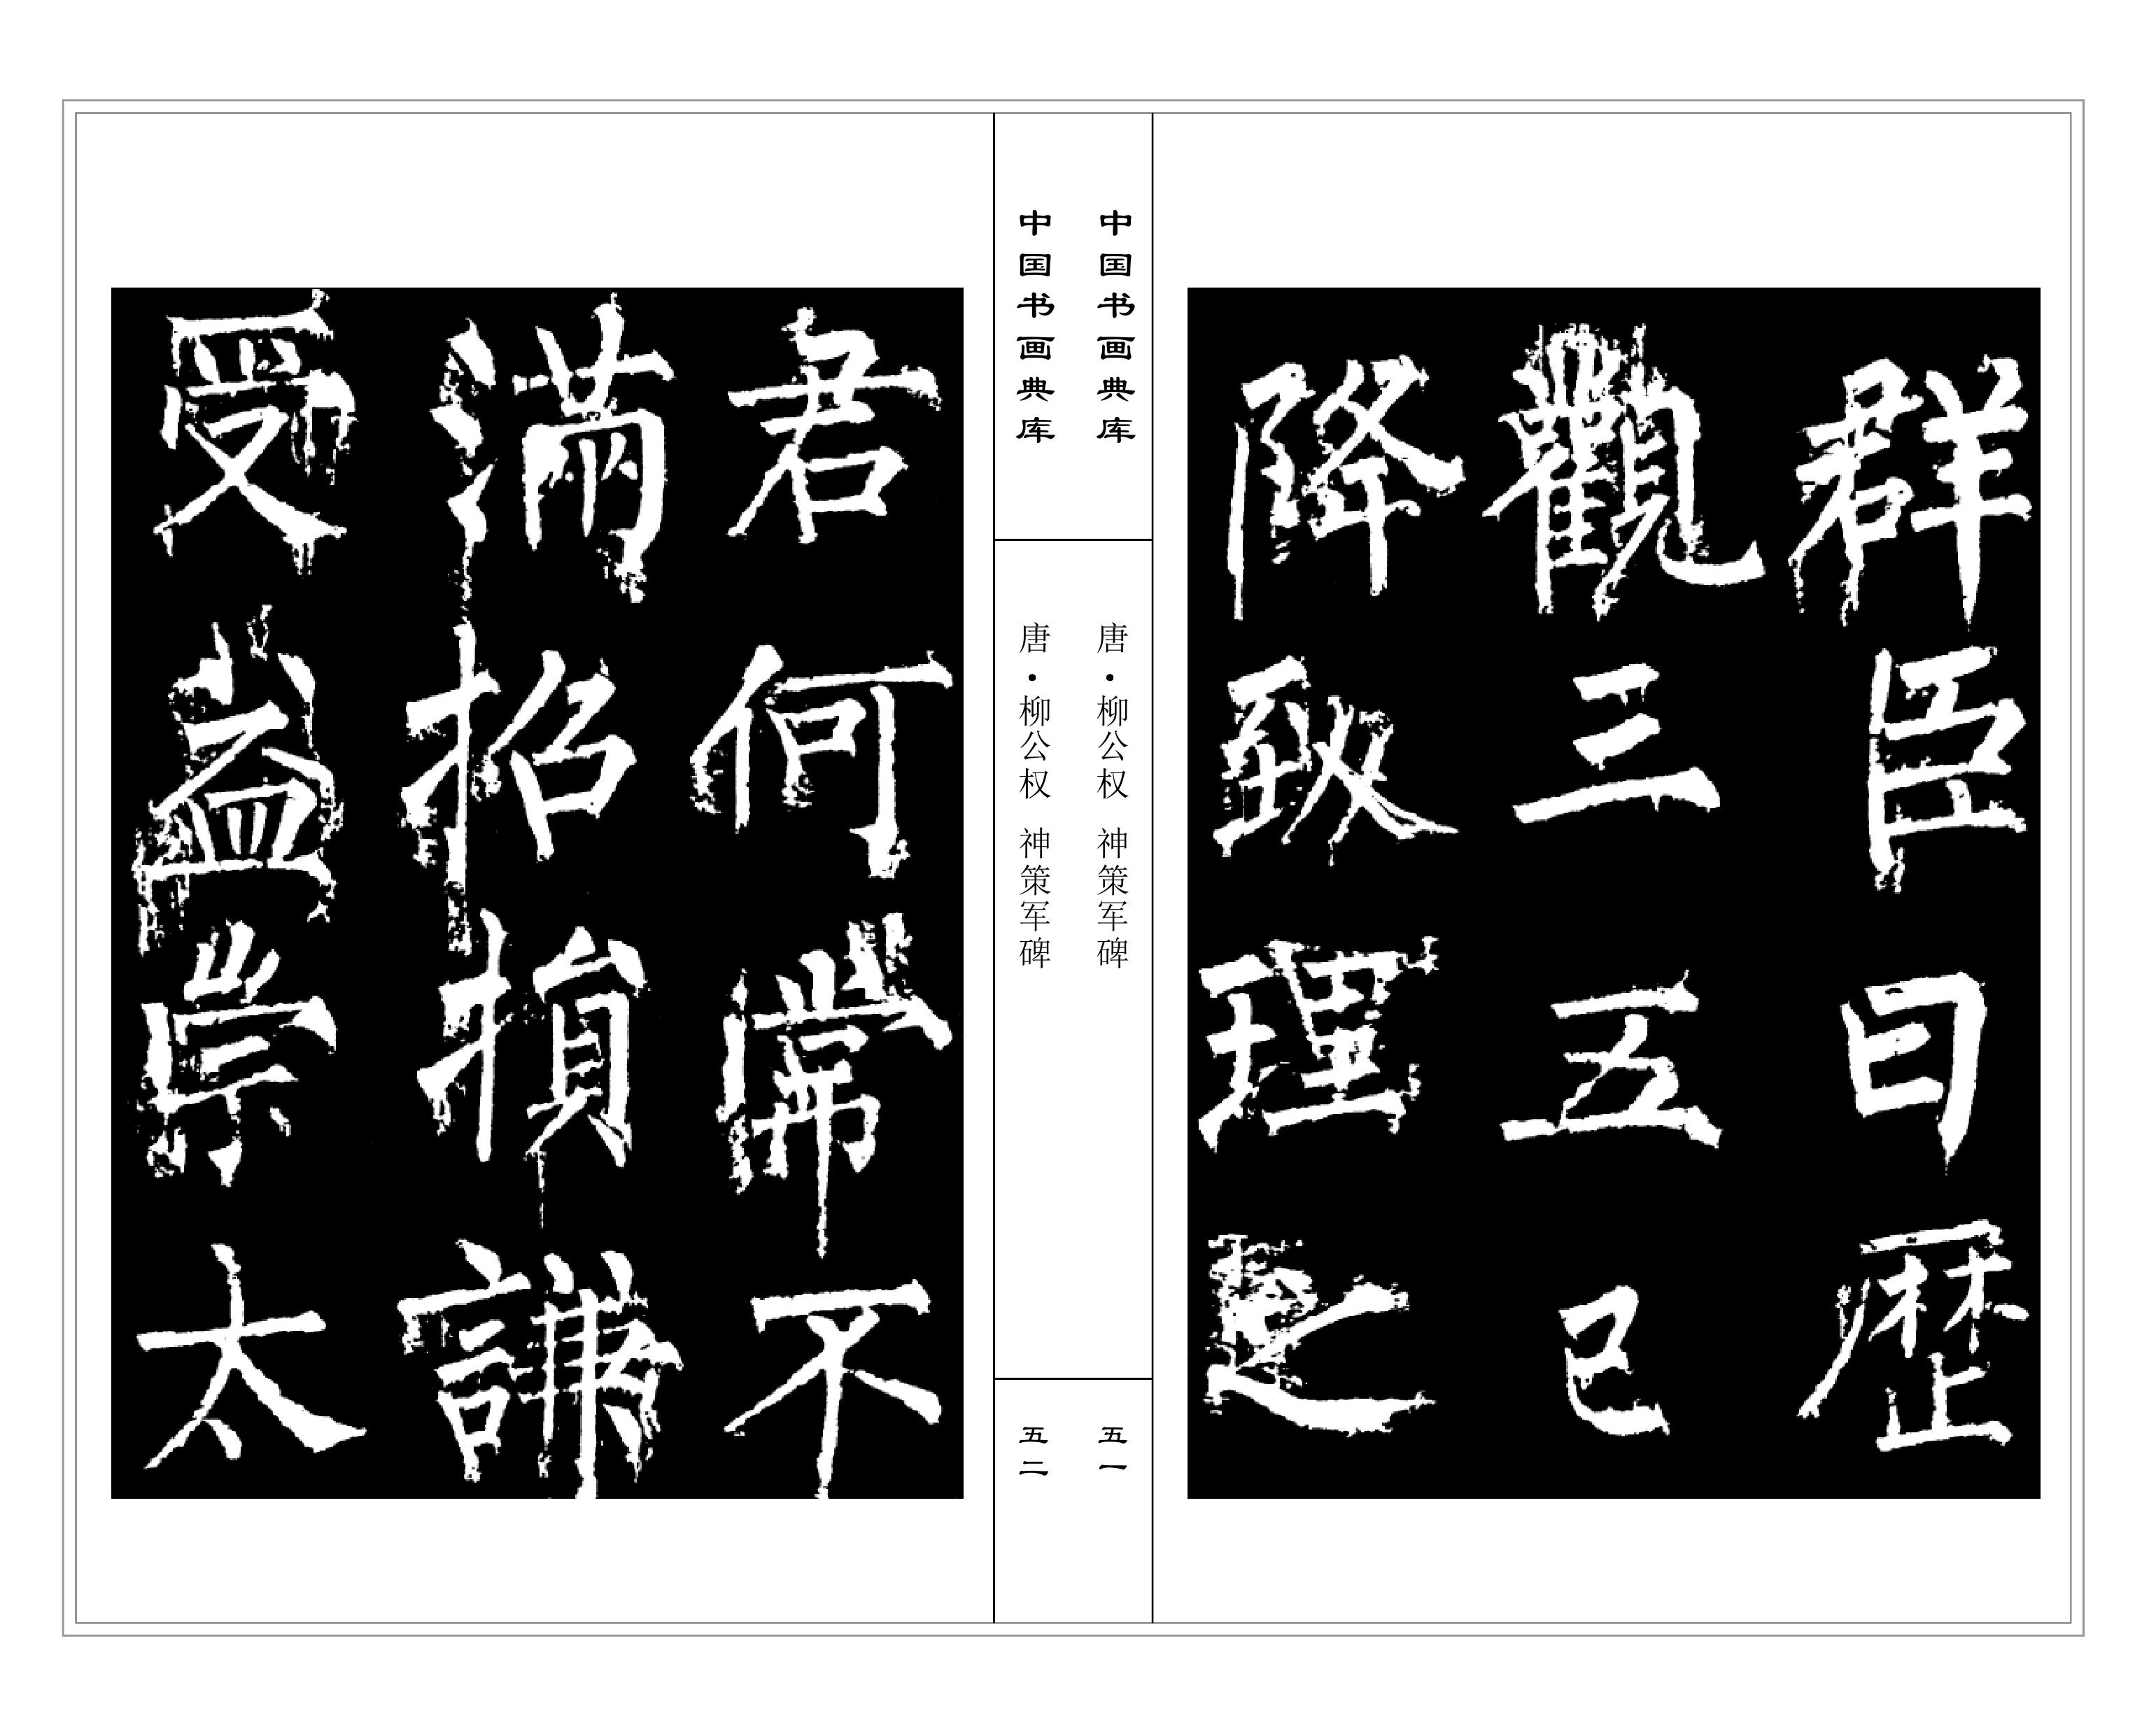 群臣曰歷
觀三五已
降致理之
中国书画典库
唐·柳公权 神策军碑
五一
中国书画典库
唐·柳公权 神策军碑
五二
君何嘗不
滿招損謙
受益崇太